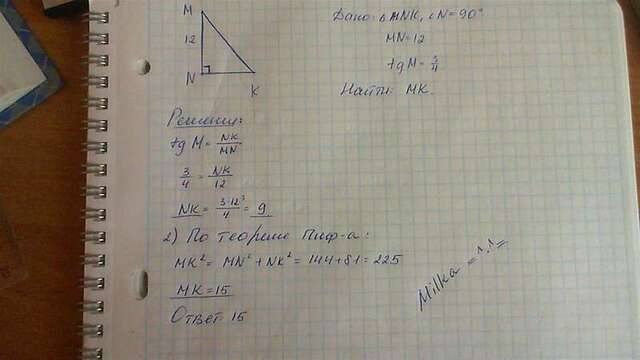 M
12
N
K
Дано: △MNK, ∠N=90°
MN=12
tg M = 3/4
Найти: MK.
Решение:
tg M = NK/MN
3/4 = NK/12
NK = 3·12³/4 = 9
2) По теореме Пиф-а:
MK² = MN² + NK² = 144+81=225
MK=15
Ответ 15
Milka =^.^=